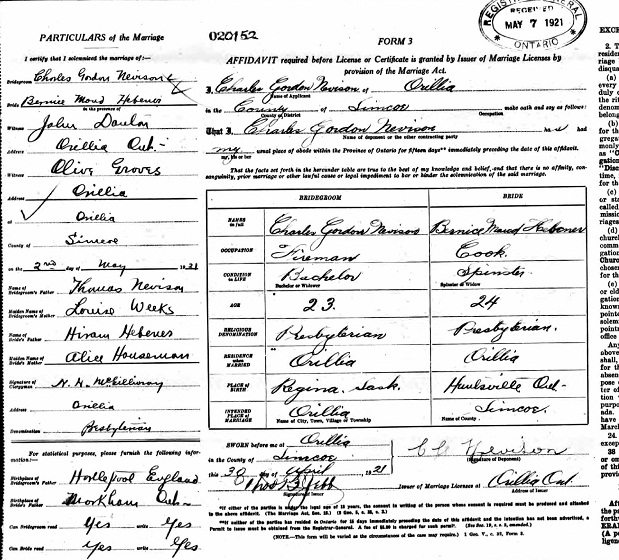 PARTICULARS of the Marriage
I certify that I solemnized the marriage of:—
Bridegroom Charles Gordon Nevison
Bride Bernice Maud Hebener
in the presence of
Witness John
Address Orillia Ont-
Witness Olive Groves
Address Orillia
at Orillia
County of Simcoe
on the 2nd day of May 1921
Name of Bridegroom's Father Thomas Nevison
Maiden Name of Bridegroom's Mother Louise Weeks
Name of Bride's Father Hiram Hebener
Maiden Name of Bride's Mother Alice Houseman
Signature of Clergyman N. N. McGillivray
Address Orillia
Denomination Presbyterian
For statistical purposes, please furnish the following information:—
Birthplace of Bridegroom's Father Hartlepool England
Birthplace of Bride's Father Markham Ont-
Can Bridegroom read Yes write Yes
Can Bride read Yes write Yes
020152
FORM 3
RECEIVED
MAY 7 1921
ONTARIO
AFFIDAVIT required before License or Certificate is granted by Issuer of Marriage Licenses by
provision of the Marriage Act.
I, Charles Gordon Nevison of Orillia
Name of Applicant
in the County of Simcoe make oath and say as follows:
County or District Occupation
That I Charles Gordon Nevison had
Name of deponent or the other contracting party
my usual place of abode within the Province of Ontario for fifteen days** immediately preceding the date of this affidavit.
my, his or her
That the facts set forth in the hereunder table are true to the best of my knowledge and belief, and that there is no affinity, consanguinity, prior marriage or other lawful cause or legal impediment to bar or hinder the solemnization of the said marriage.
BRIDEGROOM BRIDE
NAMES in full Charles Gordon Nevison Bernice Maud Hebener
OCCUPATION Fireman Cook.
CONDITION in LIFE Bachelor Spinster
Bachelor or Widower Spinster or Widow
AGE 23. 24
RELIGIOUS DENOMINATION Presbyterian Presbyterian.
RESIDENCE when MARRIED Orillia Orillia
PLACE OF BIRTH Regina, Sask. Huntsville Ont-
INTENDED PLACE of MARRIAGE Orillia Simcoe.
Name of City, Town, Village or Township Name of County.
SWORN before me at Orillia
in the County of Simcoe
this 30 day of April 1921
C G Nevison
(Signature of Deponent)
Signature of Issuer
Issuer of Marriage Licenses at Orillia Ont
Address of Issuer
*If either of the parties is under the legal age of 18 years, the consent in writing of the person whose consent is required must be produced and attached
to the above affidavit.
**If neither of the parties has resided in Ontario for 15 days immediately preceding the date of the affidavit and the intention has not been advertised, a
Permit to issue must be obtained from the Registrar-General. A fee of $5.00 is charged for such permit.
(NOTE.—This form will be varied as the circumstances of the case may require.) 1 Geo. V., c. 32, Form 3.